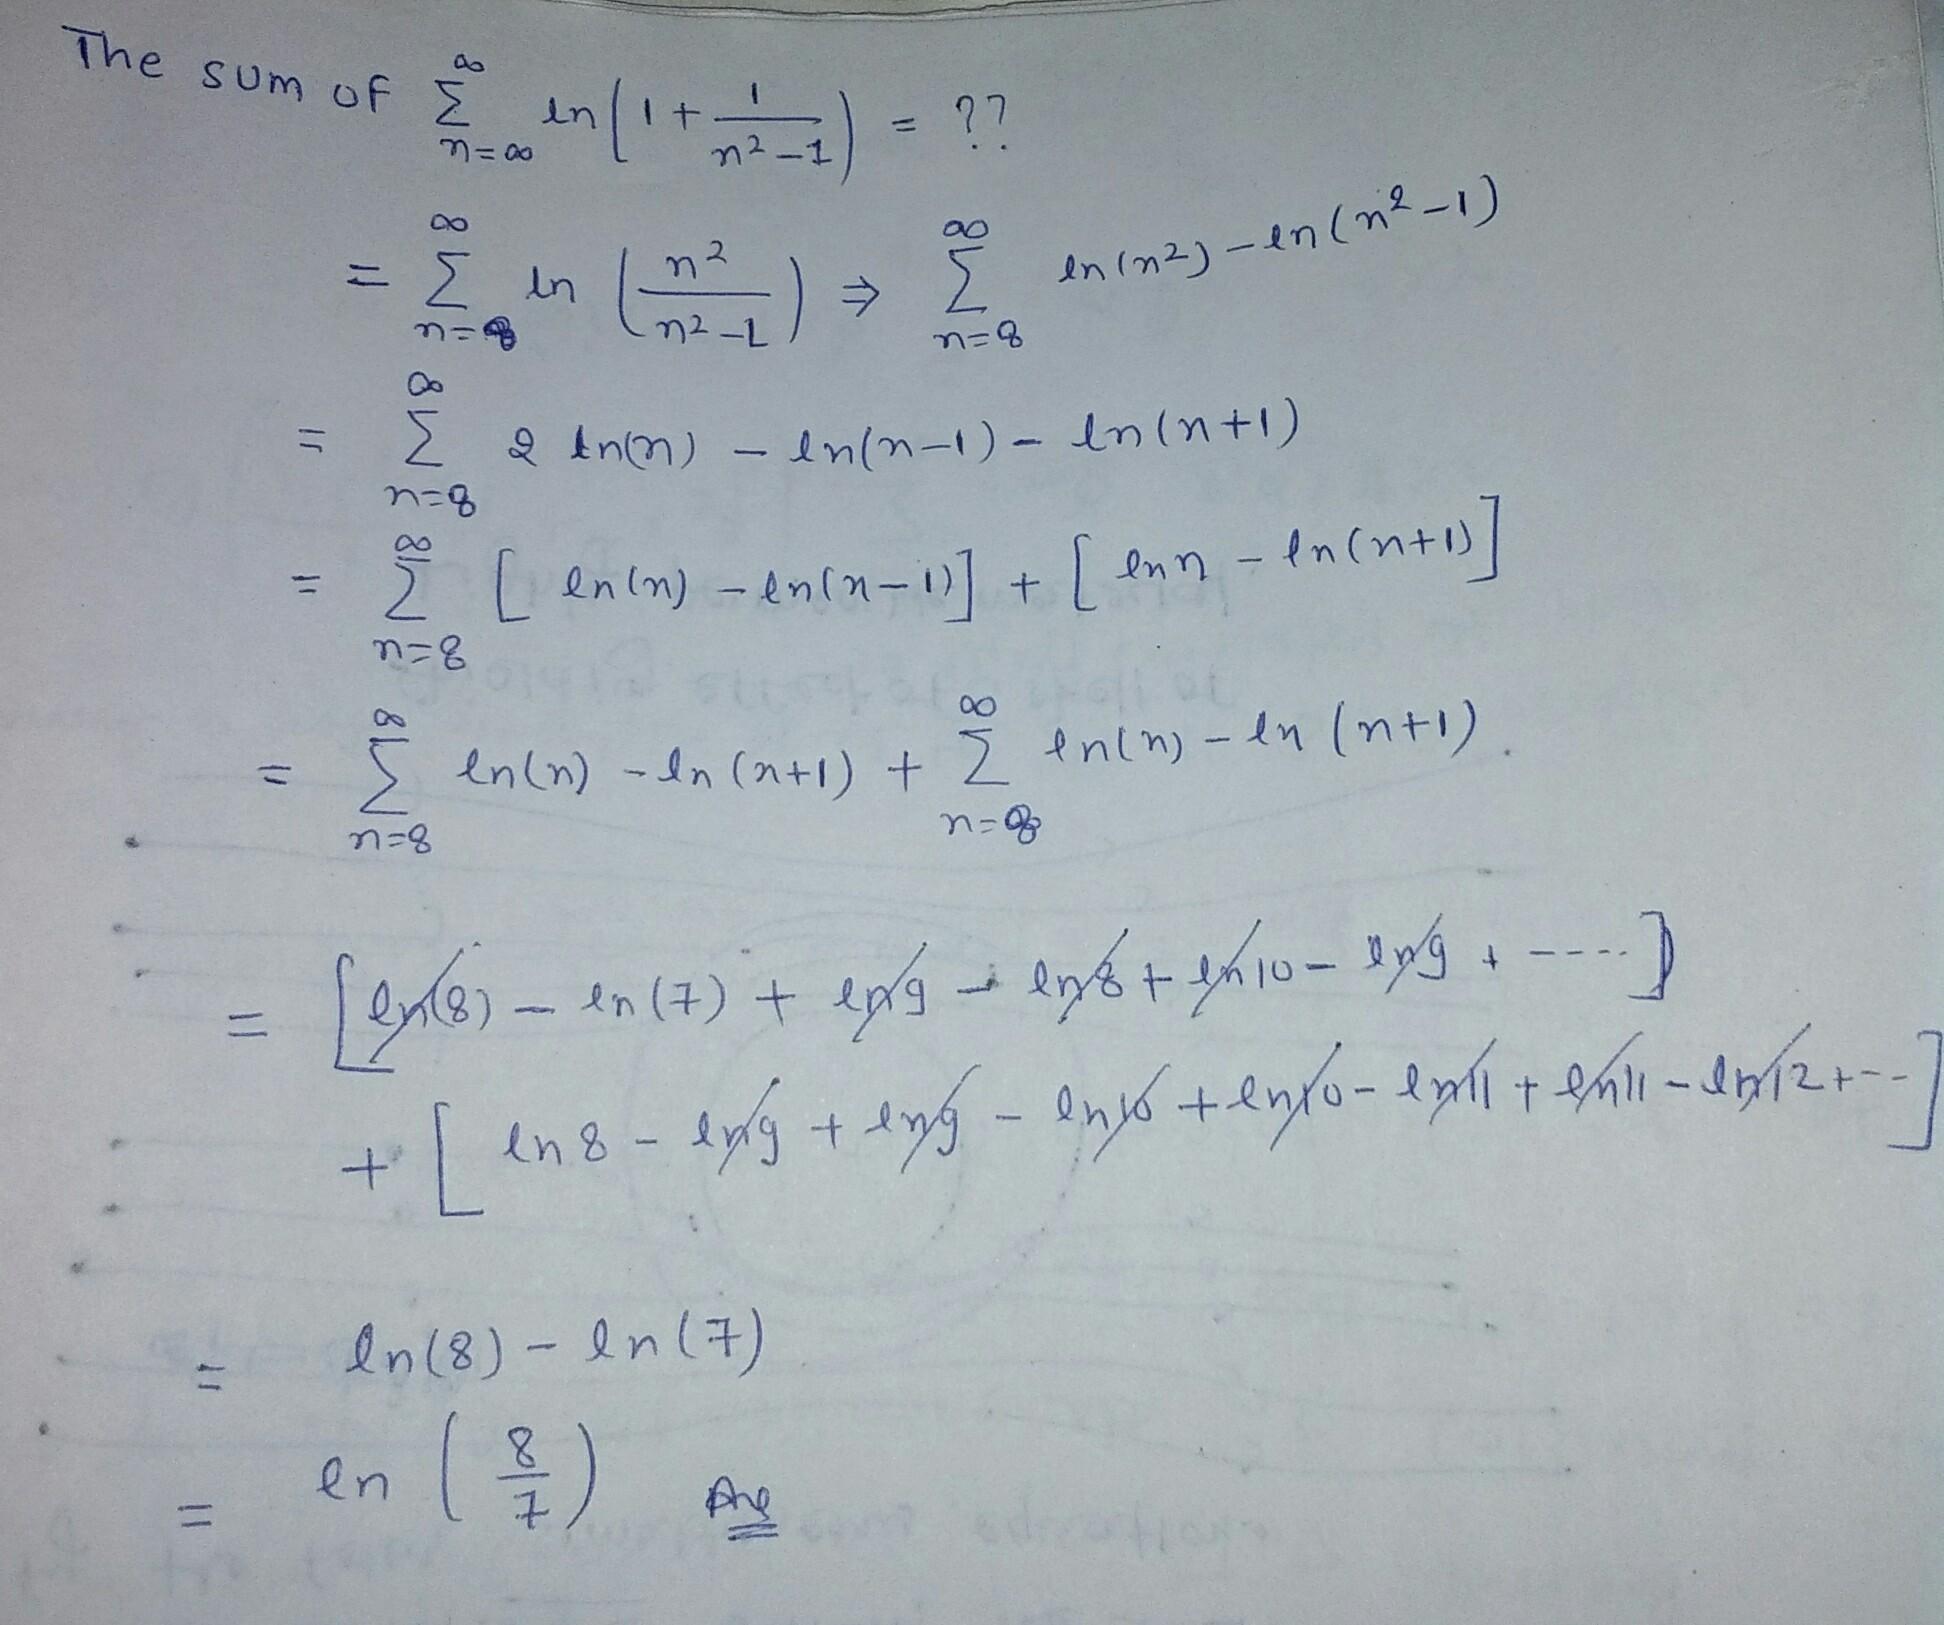 The sum of ∑_{n=∞}^{∞} ln(1 + 1/(n²-1)) = ??
= ∑_{n=8}^{∞} ln(n²/(n²-1)) ⇒ ∑_{n=8}^{∞} ln(n²) - ln(n²-1)
= ∑_{n=8}^{∞} 2 ln(n) - ln(n-1) - ln(n+1)
= ∑_{n=8}^{∞} [ln(n) - ln(n-1)] + [ln n - ln(n+1)]
= ∑_{n=8}^{∞} ln(n) - ln(n+1) + ∑_{n=8}^{∞} ln(n) - ln(n+1).
= [ln(8) - ln(7) + ln 9 - ln 8 + ln 10 - ln 9 + ----]
+ [ln 8 - ln 9 + ln 9 - ln 10 + ln 10 - ln 11 + ln 11 - ln 12 + --]
= ln(8) - ln(7)
= ln(8/7) Ans